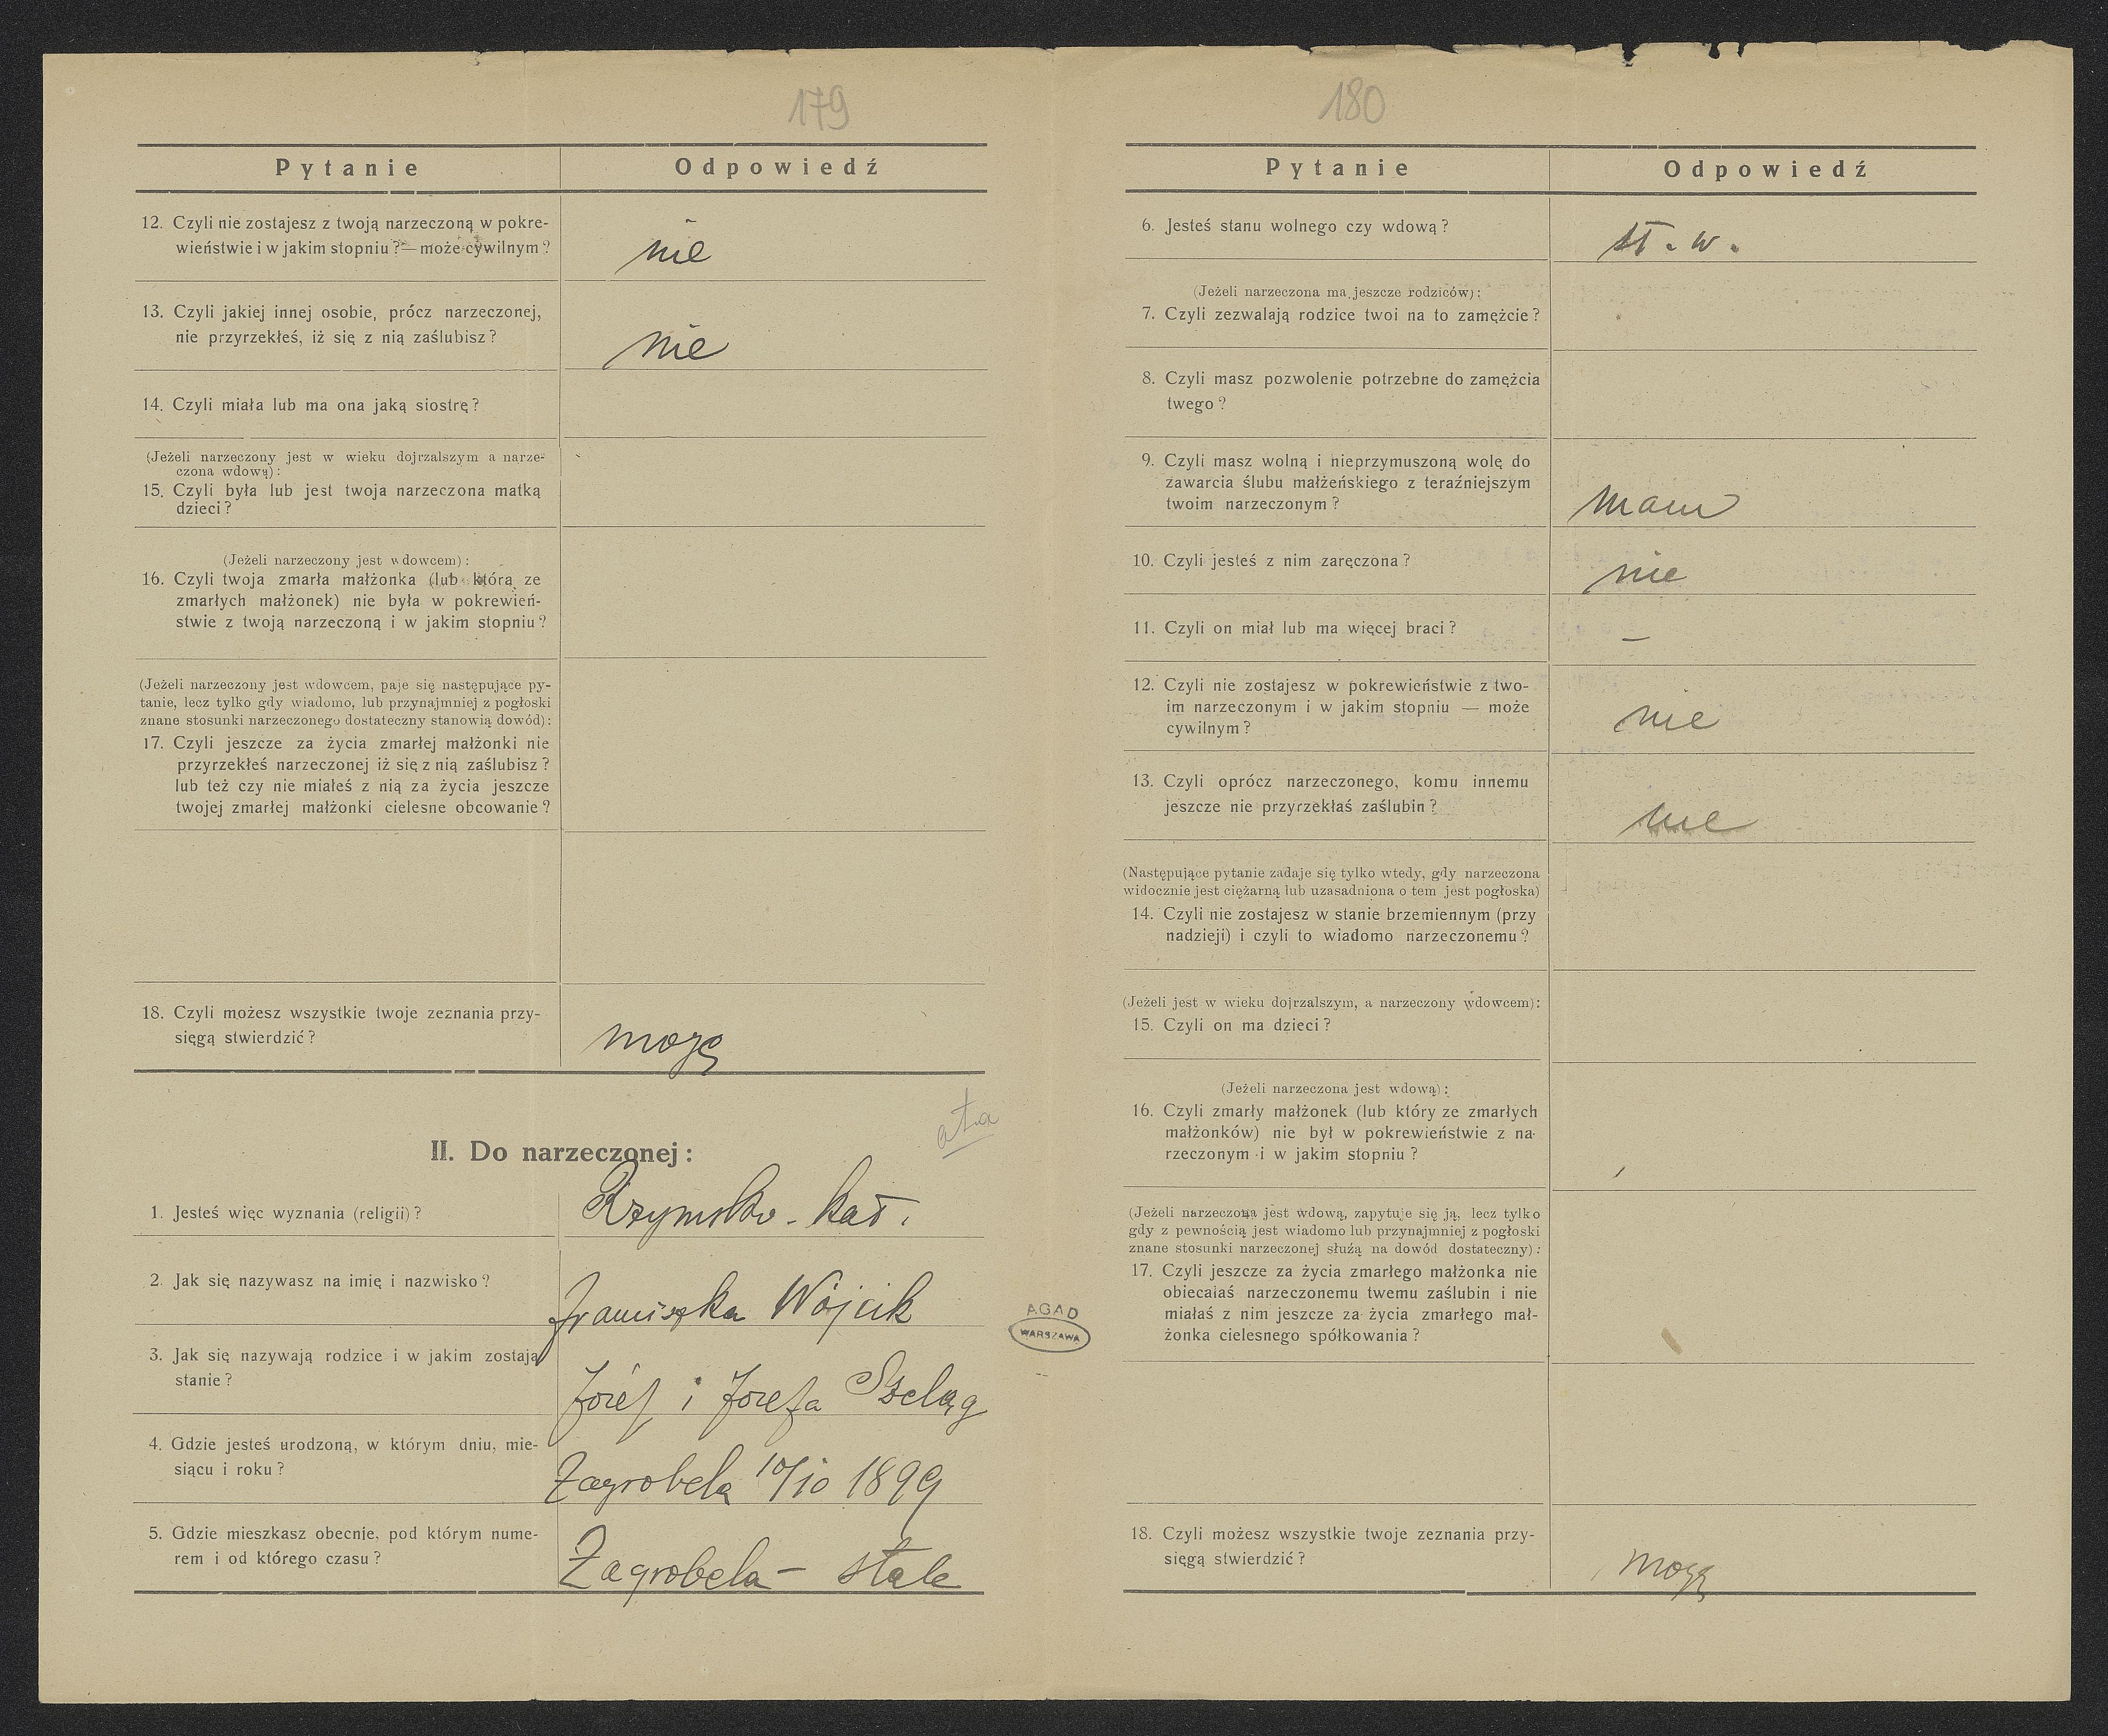 179
Pytanie Odpowiedź
12. Czyli nie zostajesz z twoją narzeczoną w pokre-
wieństwie i w jakim stopniu? — może cywilnym?
nie
13. Czyli jakiej innej osobie, prócz narzeczonej,
nie przyrzekłeś, iż się z nią zaślubisz?
nie
14. Czyli miała lub ma ona jaką siostrę?
(Jeżeli narzeczony jest w wieku dojrzalszym a narze-
czona wdową):
15. Czyli była lub jest twoja narzeczona matką
dzieci?
(Jeżeli narzeczony jest wdowcem):
16. Czyli twoja zmarła małżonka (lub która ze
zmarłych małżonek) nie była w pokrewień-
stwie z twoją narzeczoną i w jakim stopniu?
(Jeżeli narzeczony jest wdowcem, paje się następujące py-
tanie, lecz tylko gdy wiadomo, lub przynajmniej z pogłoski
znane stosunki narzeczonego dostateczny stanowią dowód):
17. Czyli jeszcze za życia zmarłej małżonki nie
przyrzekłeś narzeczonej iż się z nią zaślubisz?
lub też czy nie miałeś z nią za życia jeszcze
twojej zmarłej małżonki cielesne obcowanie?
18. Czyli możesz wszystkie twoje zeznania przy-
sięgą stwierdzić?
mogę
II. Do narzeczonej:
1. Jesteś więc wyznania (religii)?
Rzymsko-kat.
2. Jak się nazywasz na imię i nazwisko?
Franciszka Wójcik
3. Jak się nazywają rodzice i w jakim zostają
stanie?
Józef i Józefa Szeląg
4. Gdzie jesteś urodzoną, w którym dniu, mie-
siącu i roku?
Zagrobela 10/10 1899
5. Gdzie mieszkasz obecnie, pod którym nume-
rem i od którego czasu?
Zagrobela - stale
AGAD
WARSZAWA
180
Pytanie Odpowiedź
6. Jesteś stanu wolnego czy wdową?
st. w.
(Jeżeli narzeczona ma jeszcze rodziców):
7. Czyli zezwalają rodzice twoi na to zamężcie?
8. Czyli masz pozwolenie potrzebne do zamężcia
twego?
9. Czyli masz wolną i nieprzymuszoną wolę do
zawarcia ślubu małżeńskiego z teraźniejszym
twoim narzeczonym?
mam
10. Czyli jesteś z nim zaręczona?
nie
11. Czyli on miał lub ma więcej braci?
—
12. Czyli nie zostajesz w pokrewieństwie z two-
im narzeczonym i w jakim stopniu — może
cywilnym?
nie
13. Czyli oprócz narzeczonego, komu innemu
jeszcze nie przyrzekłaś zaślubin?
nie
(Następujące pytanie zadaje się tylko wtedy, gdy narzeczona
widocznie jest ciężarną lub uzasadniona o tem jest pogłoska)
14. Czyli nie zostajesz w stanie brzemiennym (przy
nadzieji) i czyli to wiadomo narzeczonemu?
(Jeżeli jest w wieku dojrzalszym, a narzeczony wdowcem):
15. Czyli on ma dzieci?
(Jeżeli narzeczona jest wdową):
16. Czyli zmarły małżonek (lub który ze zmarłych
małżonków) nie był w pokrewieństwie z na-
rzeczonym i w jakim stopniu?
(Jeżeli narzeczona jest wdową, zapytuje się ją, lecz tylko
gdy z pewnością jest wiadomo lub przynajmniej z pogłoski
znane stosunki narzeczonej służą na dowód dostateczny):
17. Czyli jeszcze za życia zmarłego małżonka nie
obiecałaś narzeczonemu twemu zaślubin i nie
miałaś z nim jeszcze za życia zmarłego mał-
żonka cielesnego spółkowania?
18. Czyli możesz wszystkie twoje zeznania przy-
sięgą stwierdzić?
mogę